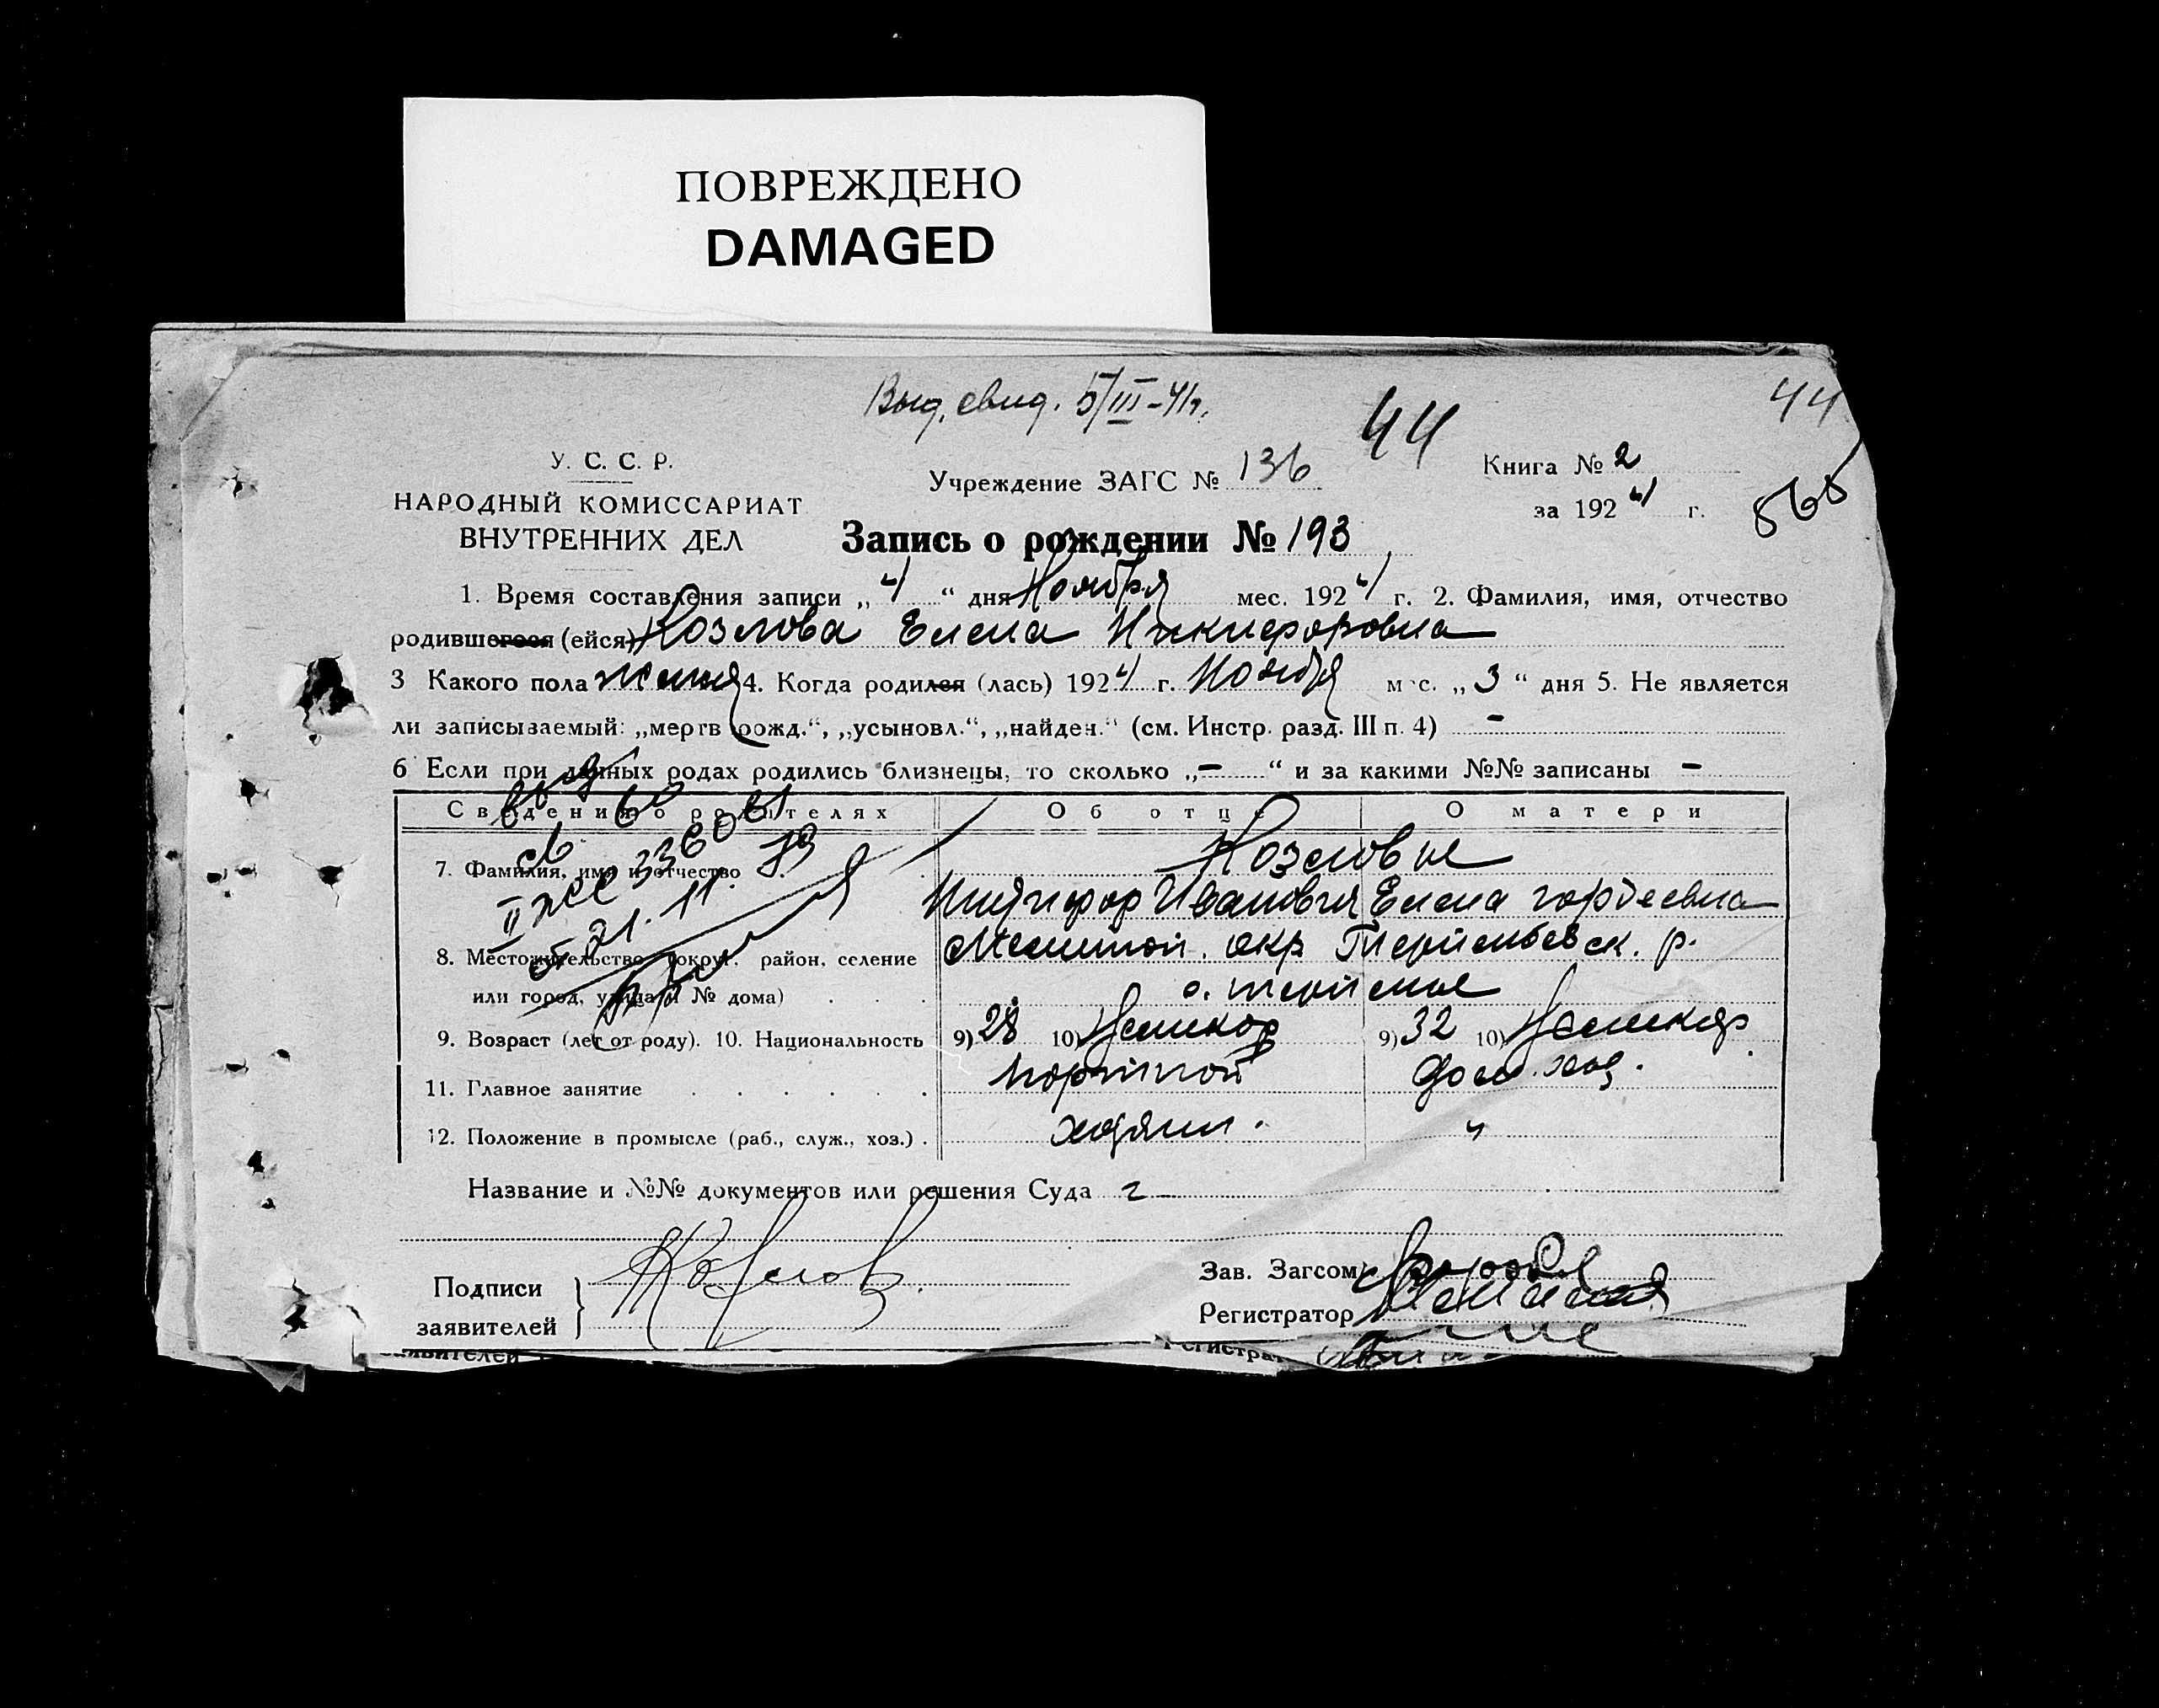 ПОВРЕЖДЕНО
DAMAGED
Выд. свид. 5/III-41г.
44
44
У. С. С. Р.
НАРОДНЫЙ КОМИССАРИАТ
ВНУТРЕННИХ ДЕЛ
Учреждение ЗАГС № 136
Книга № 2
за 1924 г.
Запись о рождении № 193
1. Время составления записи „4“ дня Ноября мес. 1924 г. 2. Фамилия, имя, отчество
родившегося (ейся) Козлова Елена Никифоровна
3 Какого пола 4. Когда родился (лась) 1924 г. Ноября мес. „3“ дня 5. Не является
ли записываемый: „мертв рожд.“, „усыновл.“, „найден.“ (см. Инстр. разд. III п. 4) –
6 Если при данных родах родились близнецы, то сколько „–“ и за какими №№ записаны –
Сведения о родителях Об отце О матери
выд
св
от 21. 11. 79
7. Фамилия, имя и отчество Козловы
Никифор Иванович Елена Гордеевна
8. Местожительство (округ, район, селение
или город, улица и № дома)
Мелитоп. окр.
9. Возраст (лет от роду). 10. Национальность 9) 28 10) 9) 32 10)
11. Главное занятие портной дом. хоз.
12. Положение в промысле (раб., служ., хоз.) хозяин. "
Название и №№ документов или решения Суда
Подписи
заявителей
Козлов
Зав. Загсом
Регистратор
заявителей
Регистрат